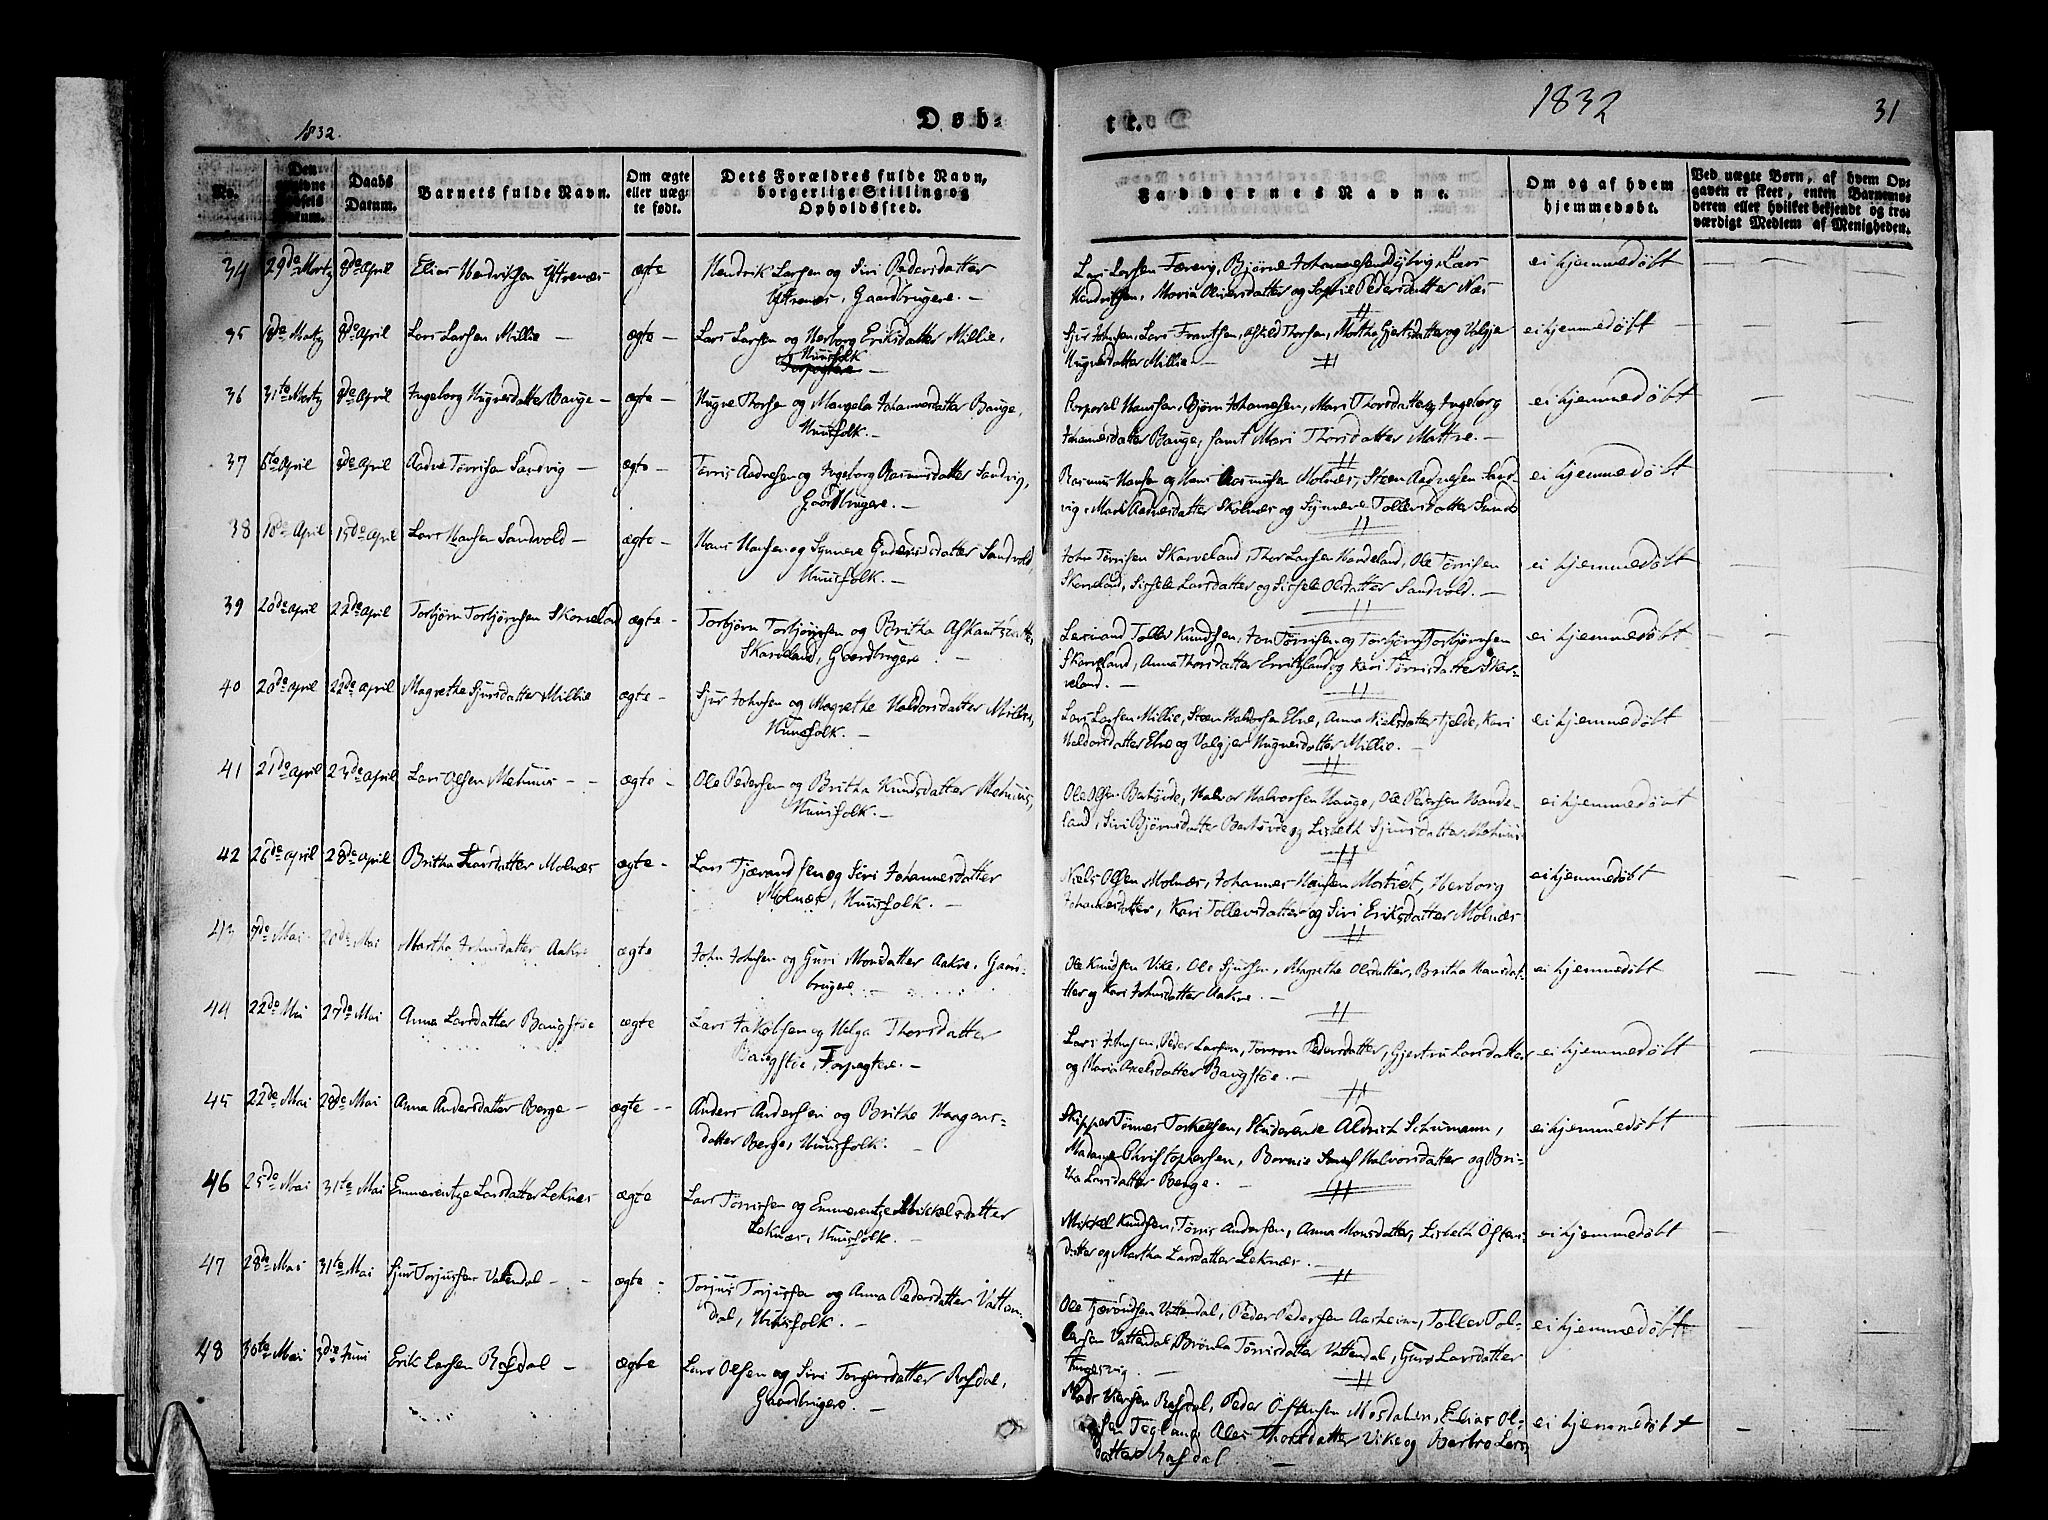 1832.
Døb-
No.
Den
Daabs
Datum.
Barnets fulde Navn.
Om ægte
eller uæg-
te født.
Dets Forældres fulde Navn,
borgerlige Stilling og
Opholdssted.
34 29de Martz 8de April Elias Hendriksen Ystrenæs ægte Hendrik Larsen og Siri Pedersdatter
Ystrenæs, Gaardbrugere. —
35 18de Martz 8de April Lars Larsen Millie — ægte — Lars Larsen og Herborg Eriksdatter Millie,
Huusfolk
Forpagtere —
36 31te Martz 8de April Ingeborg Hugnesdatter Bauge — ægte — Hugne Thorsen og Mangela Johannesdatter Bauge,
Huusfolk. —
37 6te April 8de April Aadne Tørrisen Sandvig — ægte — Tørris Aadnesen og Ingeborg Rasmusdatter Sandvig,
Gaardbrugere. —
38 10de April 15de April Lars Hansen Sandvold — ægte — Hans Hansen og Synneve Sandvold,
Huusfolk. —
39 20de April 22de April Torbjørn Torbjørnsen Skarveland ægte — Torbjørn Torbjørnsen og Britha
Skarveland, Gaardbrugere. —
40 20de April 22de April Magrethe Sjursdatter Millie ægte — Sjur Johnsen og Magrethe Haldorsdatter Millie,
Huusfolk. —
41 21de April 23de April Lars Olsen Mehuus — — ægte — Ole Pedersen og Britha Knudsdatter Mehuus,
Huusfolk. —
42 26de April 28de April Britha Larsdatter Molnæs ægte — Lars Tjærandsen og Siri Johannesdatter
Molnæs, Huusfolk. —
43 7de Mai 20de Mai Martha Johnsdatter Aakre ægte John Johnsen og Guri Monsdatter Aakre, Gaard-
brugere. —
44 22de Mai 27de Mai Anna Larsdatter Baugstøe ægte Lars Jakobsen og Helga Thorsdatter
Baugstøe, Forpagtere. —
45 22de Mai 28de Mai Anna Andersdatter Berge — ægte — Anders Andersen og Brithe Haagens-
datter Berge, Huusfolk. —
46 25de Mai 31te Mai Emmerentze Larsdatter Leknæs ægte Lars Tørrissen og Emmerentze Mikkelsdatter
Leknæs, Huusfolk. —
47 28de Mai 31te Mai Sjur Torjussen Vattendal — — ægte — Torjus Torjussen og Anna Pedersdatter Vatten-
dal, Huusfolk. —
48 30te Mai 3die Juni Erik Larsen Rafdal — ægte Lars Olsen og Siri Torgersdatter Rafdal,
Gaardbrugere. —
te.
1832
31
Faddernes Navne.
Om og af hvem
hjemmedøbt.
Ved uægte Børn, af hvem Op-
gaven er skeet, enten Barnemo-
deren eller hvilket bekjendt og tro-
værdigt Medlem af Menigheden.
Lars Larsen Færevig, Bjørne Johannesen Dybvig, Lars ei hjemmedøbt — — —
Hendriksen, Maria Oliversdatter og Sophie Pedersdatter Næs
Sjur Johnsen, Lars Frantsen, Thorsen, Martha Gjertsdatter og Valgjer ei hjemmedøbt — —
Hugnesdatter Millie. —
Corporal Hanssen, Bjørn Johannesen, Mari Thorsdatter og Ingeborg ei hjemmedøbt — —
Johannesdatter Bauge, samt Mari Thorsdatter Mattre. —
Rasmus Hansen og Hans Rasmusen Molnæs, Steen Aadnesen Sand- ei hjemmedøbt —
vig, Mari Aadnesdatter Skolnæs og Synneve Tollevsdatter Sunde
John Tørrisen Skarveland, Thor Larsen Handeland, Ole Tørrisen ei hjemmedøbt — —
Skarveland, Sissele Larsdatter og Sissele Olsdatter Sandvold. —
Tollev Knudsen, Jon Tørrisen og Torbjørn Torbjørnsen ei hjemmedøbt — —
Skarveland, Anna Thorsdatter og Kari Tørrisdatter Skar-
veland. —
Lars Larsen Millie, Steen Haldorsen Elve, Anna Nielsdatter Fjelde, Kari ei hjemmedøbt — —
Haldorsdatter Elve og Valgjer Hugnesdatter Millie. —
Ole Olsen, Halvor Halvorsen Hauge, Ole Pedersen Hande- ei hjemmedøbt
land, Siri Bjørnsdatter og Lisbeth Sjursdatter Mehuus
Niels Olsen Molnæs, Johannes Hansen, Herborg ei hjemmedøbt
Johannesdatter, Kari Tollevsdatter og Siri Eriksdatter Molnæs
Ole Knudsen Vike, Ole Sjursen, Magrethe Olsdatter, Britha Hansdat- ei hjemmedøbt — —
ter og Kari Johnsdatter Aakre. —
Lars Johnsen, Peder Larsen, Pedersdatter, Gjertru Larsdatter ei hjemmedøbt — —
og Maria Axelsdatter Baugstøe. —
Skipper Tønnes Torkelsen, Studerende Aldrich Schumann, ei hjemmedøbt —
Madame Christophersen, Halvorsdatter og Bri-
tha Larsdatter Berge. —
Mikkel Knudsen, Tørris Andersen, Anna Monsdatter, Lisbeth Østens- ei hjemmedøbt —
datter og Martha Larsdatter Leknæs. —
Ole Tjærandsen Vattendal, Peder Pedersen Aarheim, Tollev Tol- ei hjemmedøbt
levsen Vattendal, Brønla Tørrisdatter Vattendal, Guro Larsdatter
—
Mads Rafdal, Peder Østensen Mosdalen, Elias Ol- ei hjemmedøbt — —
sen Tegland, Ales Thorsdatter Vike og Barbro Lars-
datter Rafdal —